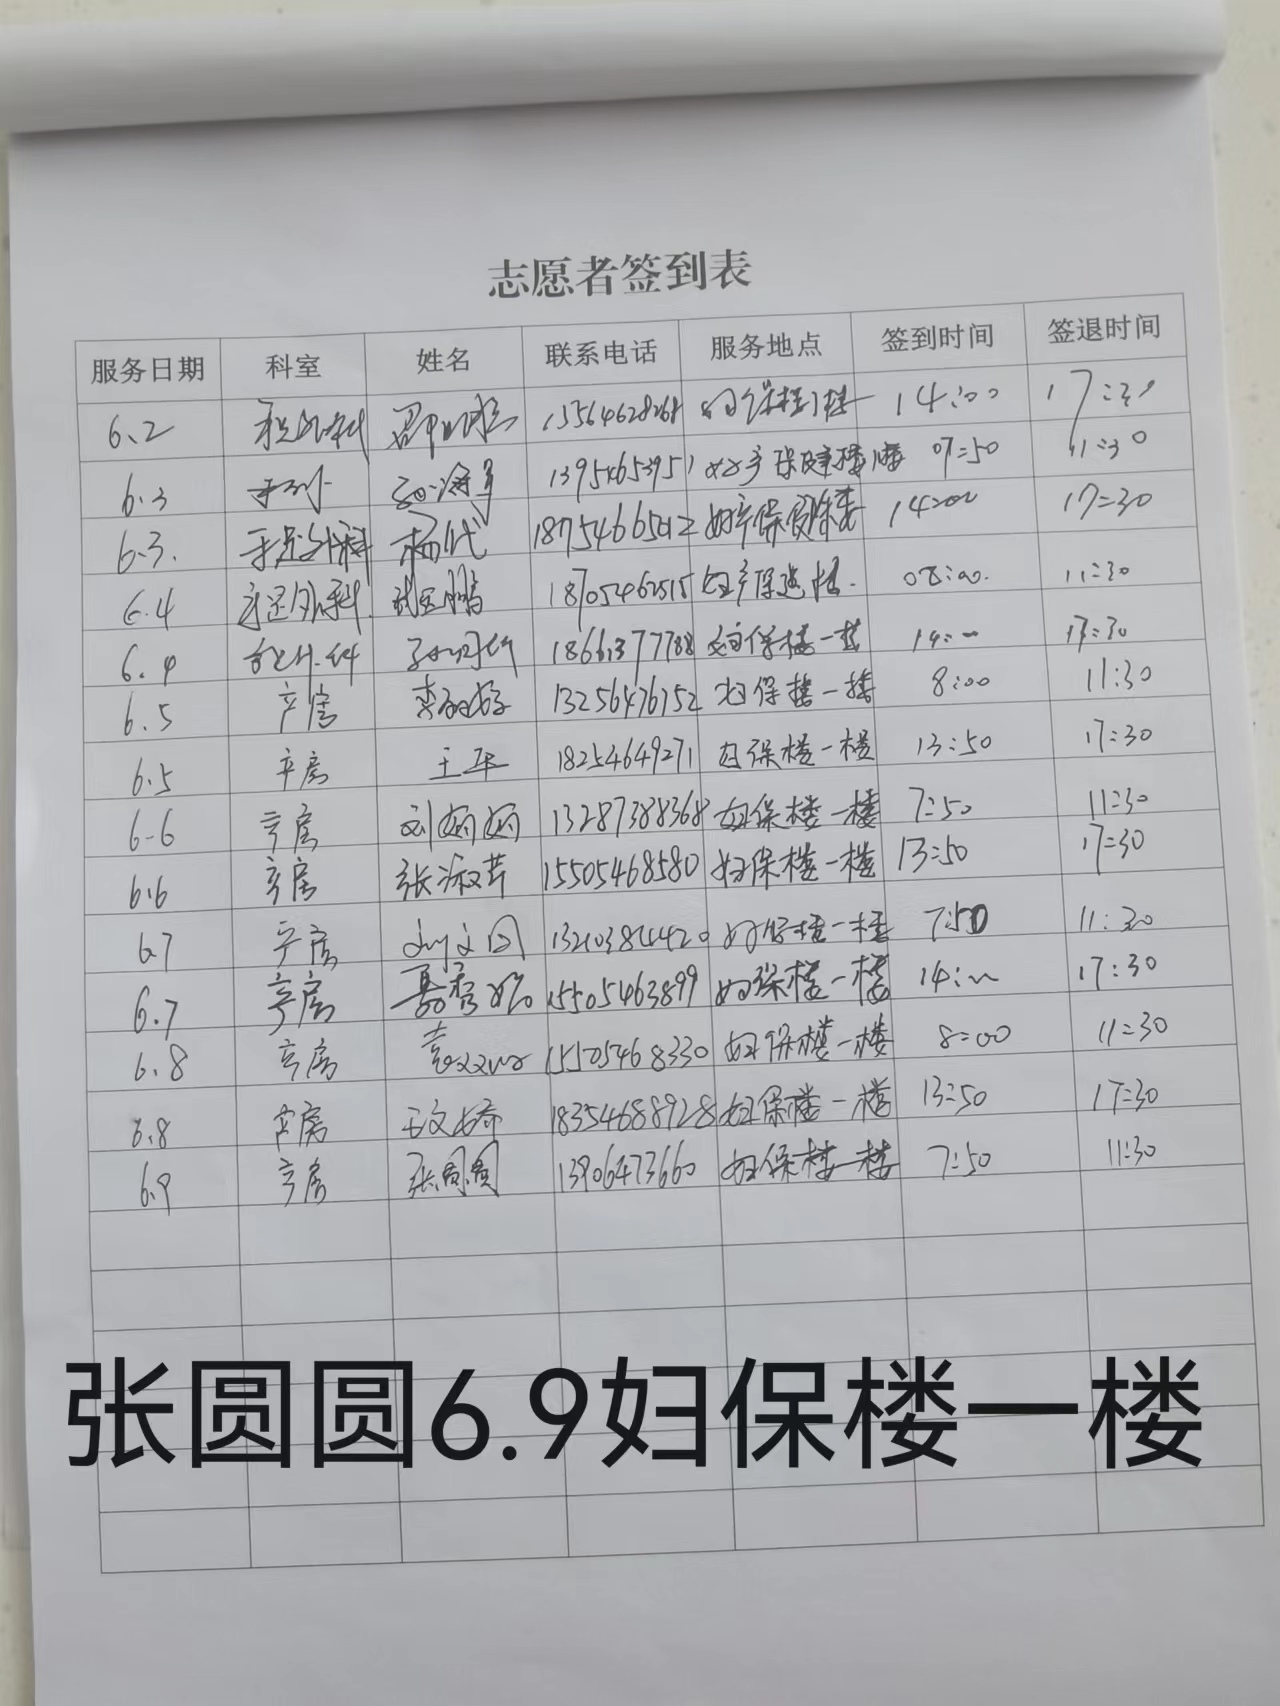 志愿者签到表
服务日期 科室 姓名 联系电话 服务地点 签到时间 签退时间
6.2 13564628268 妇保楼1楼 14:00 17:30
6.3 13954653951 妇产保健楼1楼 07:50 11:30
6.3. 手足外科 18754665012 14:00 17:30
6.4 手足外科 18705462515 08:00. 11:30
6.4 18661377788 妇保楼一楼 14:00 17:30
6.5 产房 13256476752 妇保楼一楼 8:00 11:30
6.5 产房 王平 18254649271 妇保楼一楼 13:50 17:30
6.6 产房 刘娟娟 13287388368 妇保楼一楼 7:50 11:30
6.6 产房 张淑芹 15505468580 妇保楼一楼 13:50 17:30
6.7 产房 13210384420 妇保楼一楼 7:50 11:30
6.7 产房 15505463899 妇保楼一楼 14:00 17:30
6.8 产房 15505468330 妇保楼一楼 8:00 11:30
6.8 产房 王文娇 18354688928 妇保楼一楼 13:50 17:30
6.9 产房 张圆圆 13906473660 妇保楼一楼 7:50 11:30
张圆圆6.9妇保楼一楼